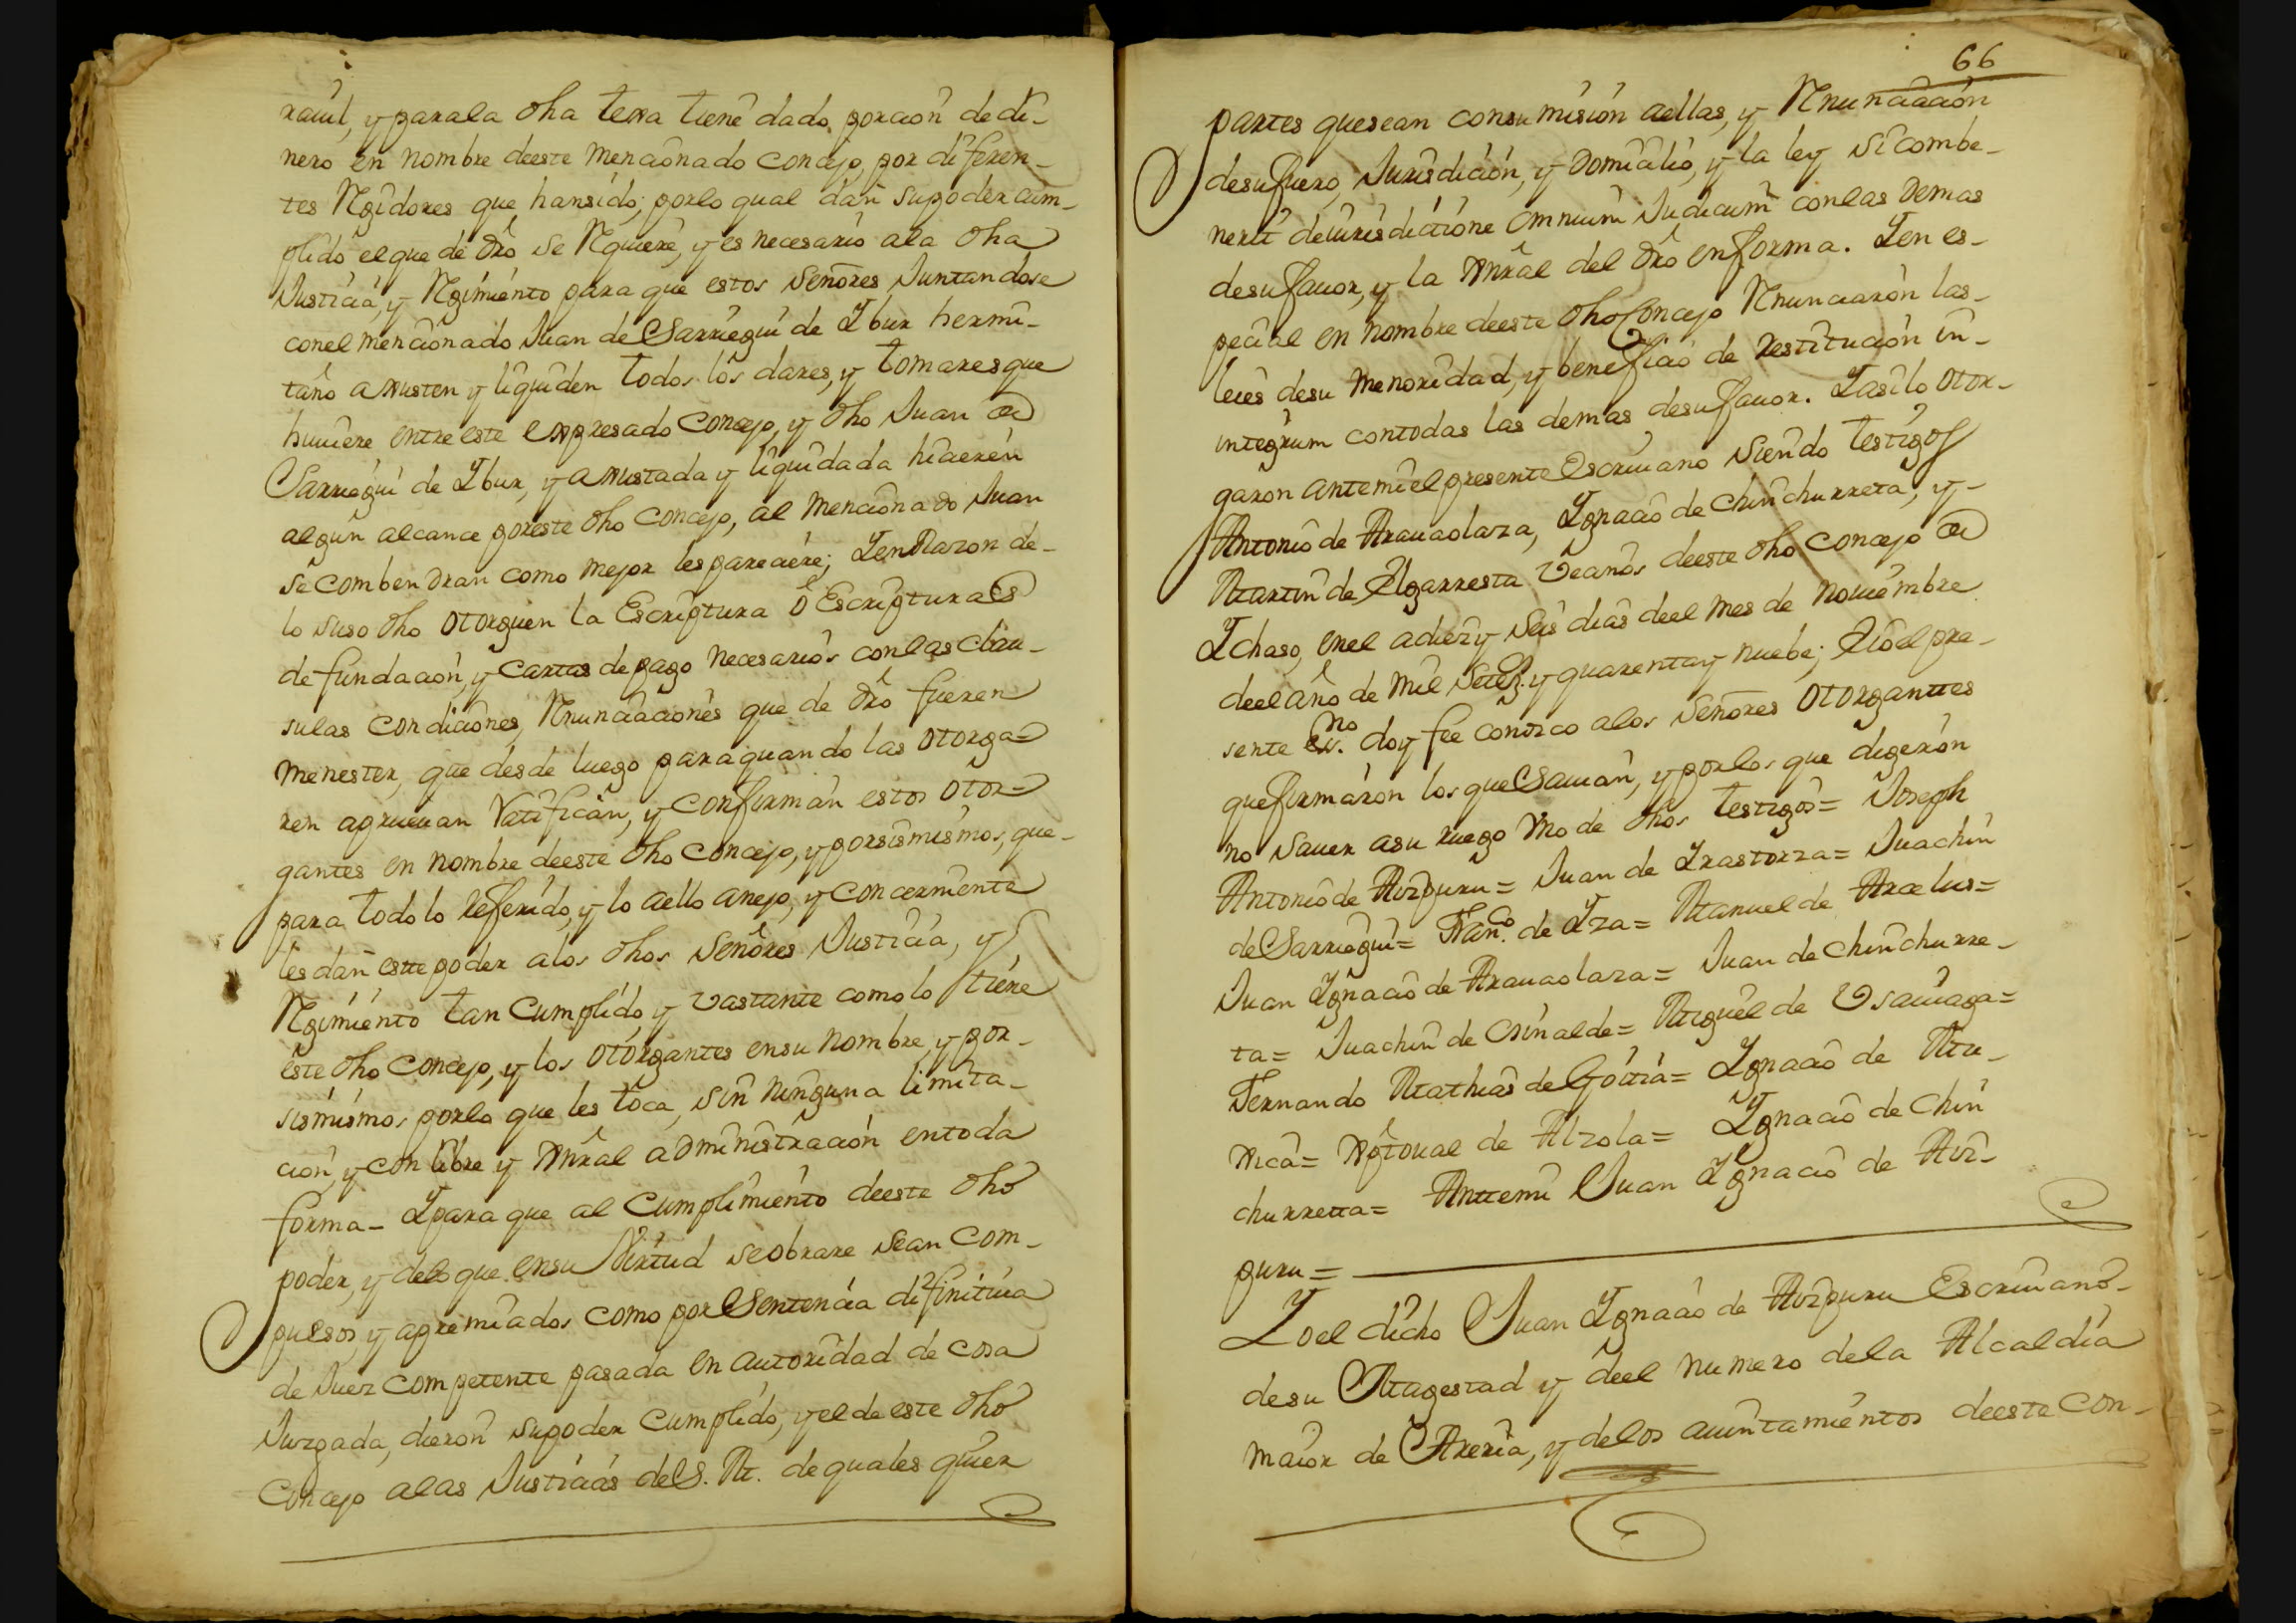 rauil, y para la dha terra tiene dado, porcion de di-
nero en nombre deeste mencionado concejo, por diferen-
tes Rgidores que hansido; porlo qual dan supoder cum-
plido el que de dro se Rquiere, y es necesario ala dha
Justicia, y Rgimiento para que estos Señores Juntandose
conel mencionado Juan de Sarriegui de Ybur hermi-
taño axusten y liquiden todos los dares, y tomares que
huuiere entre este expresado Concejo, y dho Juan de
Sarriegui de Ybur, y axustada y liquidada hicieren
algun alcance poreste dho concejo, al mencionado Juan
se combendran como mejor les pareciere; Yen Razon de-
lo suso dho otorguen la Escriptura o Escripturas
de fundacion, y cartas de pago necesarios con las clau-
sulas condiciones, Rnunciaciones que de dro fueren
menester, que desde luego para quando las otorga-
ren aprueuan Ratifican, y confirman estos otor-
gantes en nombre deeste dho concejo, y porsismismos, que-
para todo lo referido, y lo aello anejo, y concerniente
les dan este poder alos dhos Señores Justicia, y
Rgimiento tan cumplido, y vastante como lo tiene
este dho concejo, y los otorgantes ensu nombre, y por-
sismismos, porlo que les toca, sin ninguna limita-
cion, y con libre y Gnral administracion entoda
forma- Ypara que al cumplimiento deeste dho
poder, y delo que ensu Virtud seobrare sean com-
pulsos, y apremiados como por Sentencia difinitiua
de Juez competente pasada en autoridad de cosa
Juzgada, dieron supoder cumplido, y el de este dho
Concejo alas Justicias deS. M. de quales quier
66
partes quesean consu misión aellas, y Rnunciacion
desufuero, Jurisdicion, y domicilio, y la ley sicombe-
nerit deiurisdictione omnium Judicum conlas demas
desufauor, y la Gnral del dro enforma. Yen es-
pecial en nombre deeste dho Concejo Rnunciaron las-
leies desu menoridad, y beneficio de restitucion in-
integrum contodas las demas desufauor. Yasilo otor-
garon antemi el presente Escriuano siendo testigos
Antonio de Arauaolaza, Ygnacio de Chinchurreta, y-
Martin de Elgarresta Vecinos deeste dho concejo de
Ychaso, enel adiez y seis dias deel mes de Nouiembre
deel año de mil setez. y quarentay nuebe; Eioel pre-
sente esno. doy fee conozco alos Señores otorganttes
quefirmaron los que Sauian, y porlos que digeron
no sauer asu ruego vno de dhos testigos= Joseph
Antonio de Aizpuru= Juan de Yrastorza= Juachin
de Sarriegui= Franco. de Yza= Manuel de Arcelus=
Juan Ygnacio de Arauaolaza= Juan de Chinchurre-
ta= Juachin de Osinalde= Miguel de Vsauiaga=
Fernando Mathias de Goitia= Ygnacio de Mu-
xica= Xptoual de Alzola= Ygnacio de Chin
churretta= Anttemi Juan Ygnacio de Aiz-
puru=
Yoel dicho Juan Ygnacio de Aizpuru Escriuano-
desu Magestad y deel numero dela Alcaldia
maior de Areria, y delos auintamientos deeste con-